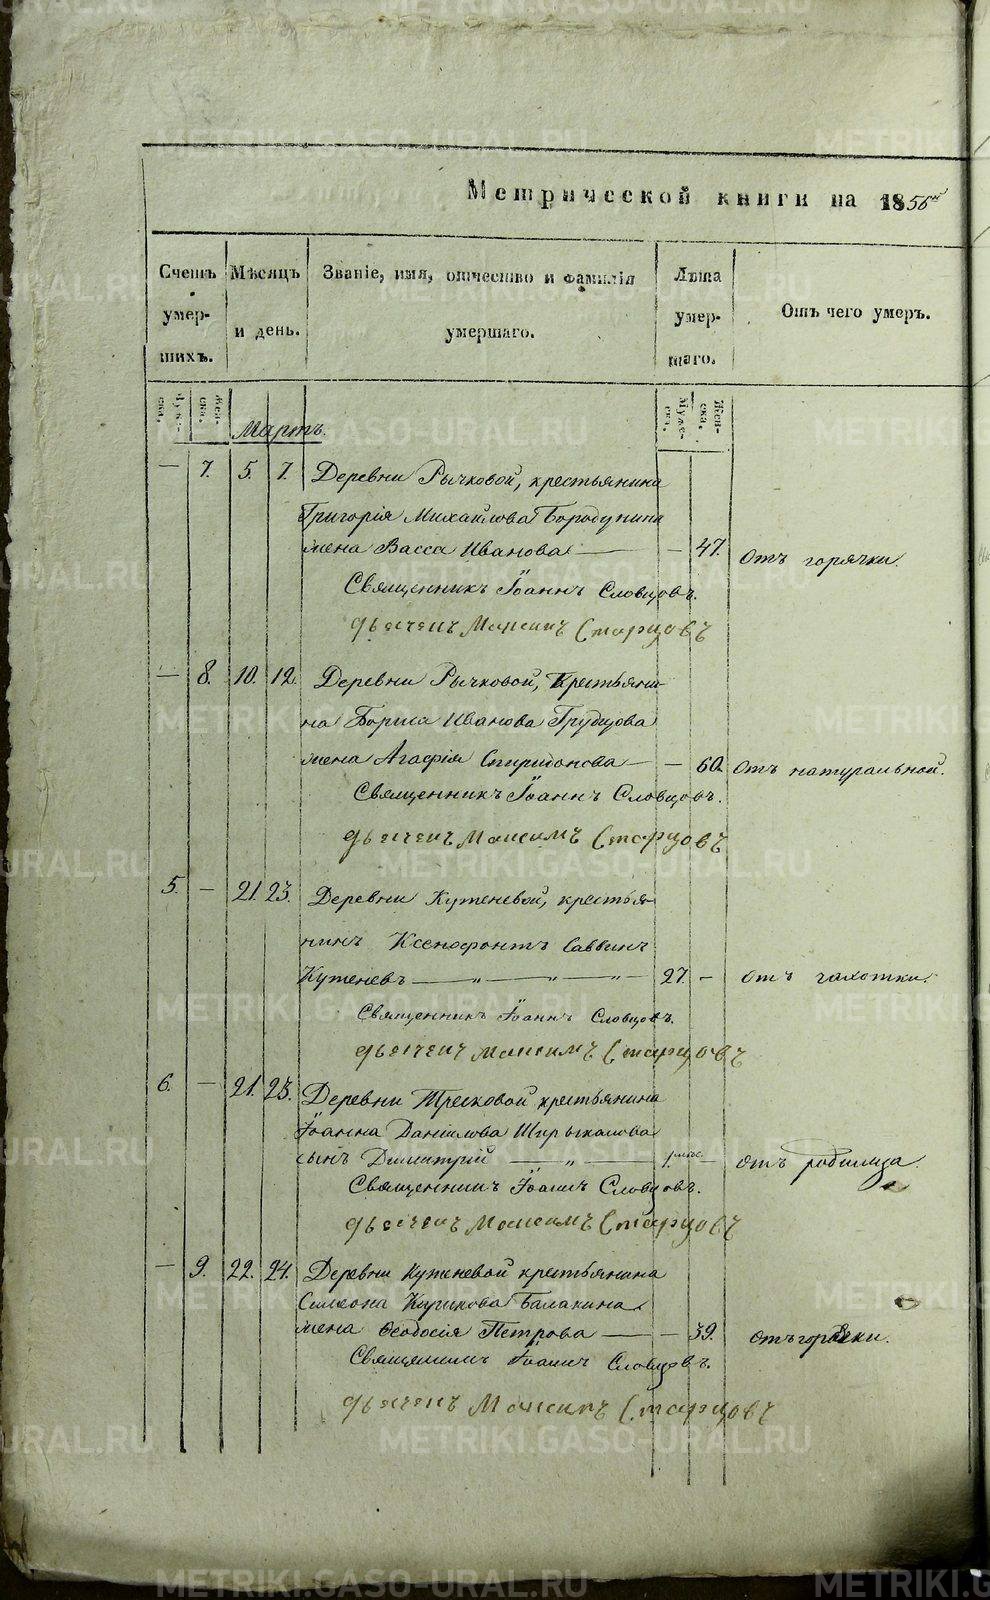 Метрической книги на 1856й
Счетъ умер-шихъ.
Мѣсяцъ и день.
Званіе, имя, отчество и фамилія умершаго.
Лѣта умер-шаго.
Отъ чего умеръ.
Муже-ска.
Жен-ска.
Муже-ска.
Жен-ска.
Мартъ.
— 7. 5. 7. Деревни Рычковой, крестьянина
Григорія Михайлова Бородунина
жена Васса Иванова — — 47. Отъ горячки.
Священникъ Іоаннъ Словцовъ.
Дьячекъ Максимъ Старцовъ
— 8. 10. 12. Деревни Рычковой, Крестьяни-
на Бориса Иванова Грудцова
жена Агафія Спиридонова — — 60. Отъ натуральной.
Священникъ Іоаннъ Словцовъ.
Дьячекъ Максимъ Старцовъ
5. — 21. 23. Деревни Кутеневой, крестья-
нинъ Ксенофонтъ Саввинъ
Кутеневъ — „ — „ — „ — 27. — отъ чахотки.
Священникъ Іоаннъ Словцовъ.
Дьячекъ Максимъ Старцовъ
6. — 21. 23. Деревни Тресковой крестьянина
Іоанна Данилова Шарыкалова
сынъ Димитрій — „ — 1. мѣс. — отъ родимца.
Священникъ Іоаннъ Словцовъ.
Дьячекъ Максимъ Старцовъ
— 9. 22. 24. Деревни Кутеневой крестьянина
Симеона Кирикова Балакина
жена Ѳеодосія Петрова — — 39. отъ горячки.
Священникъ Іоаннъ Словцовъ.
Дьячекъ Максимъ Старцовъ
METRIKI.GASO-URAL.RU